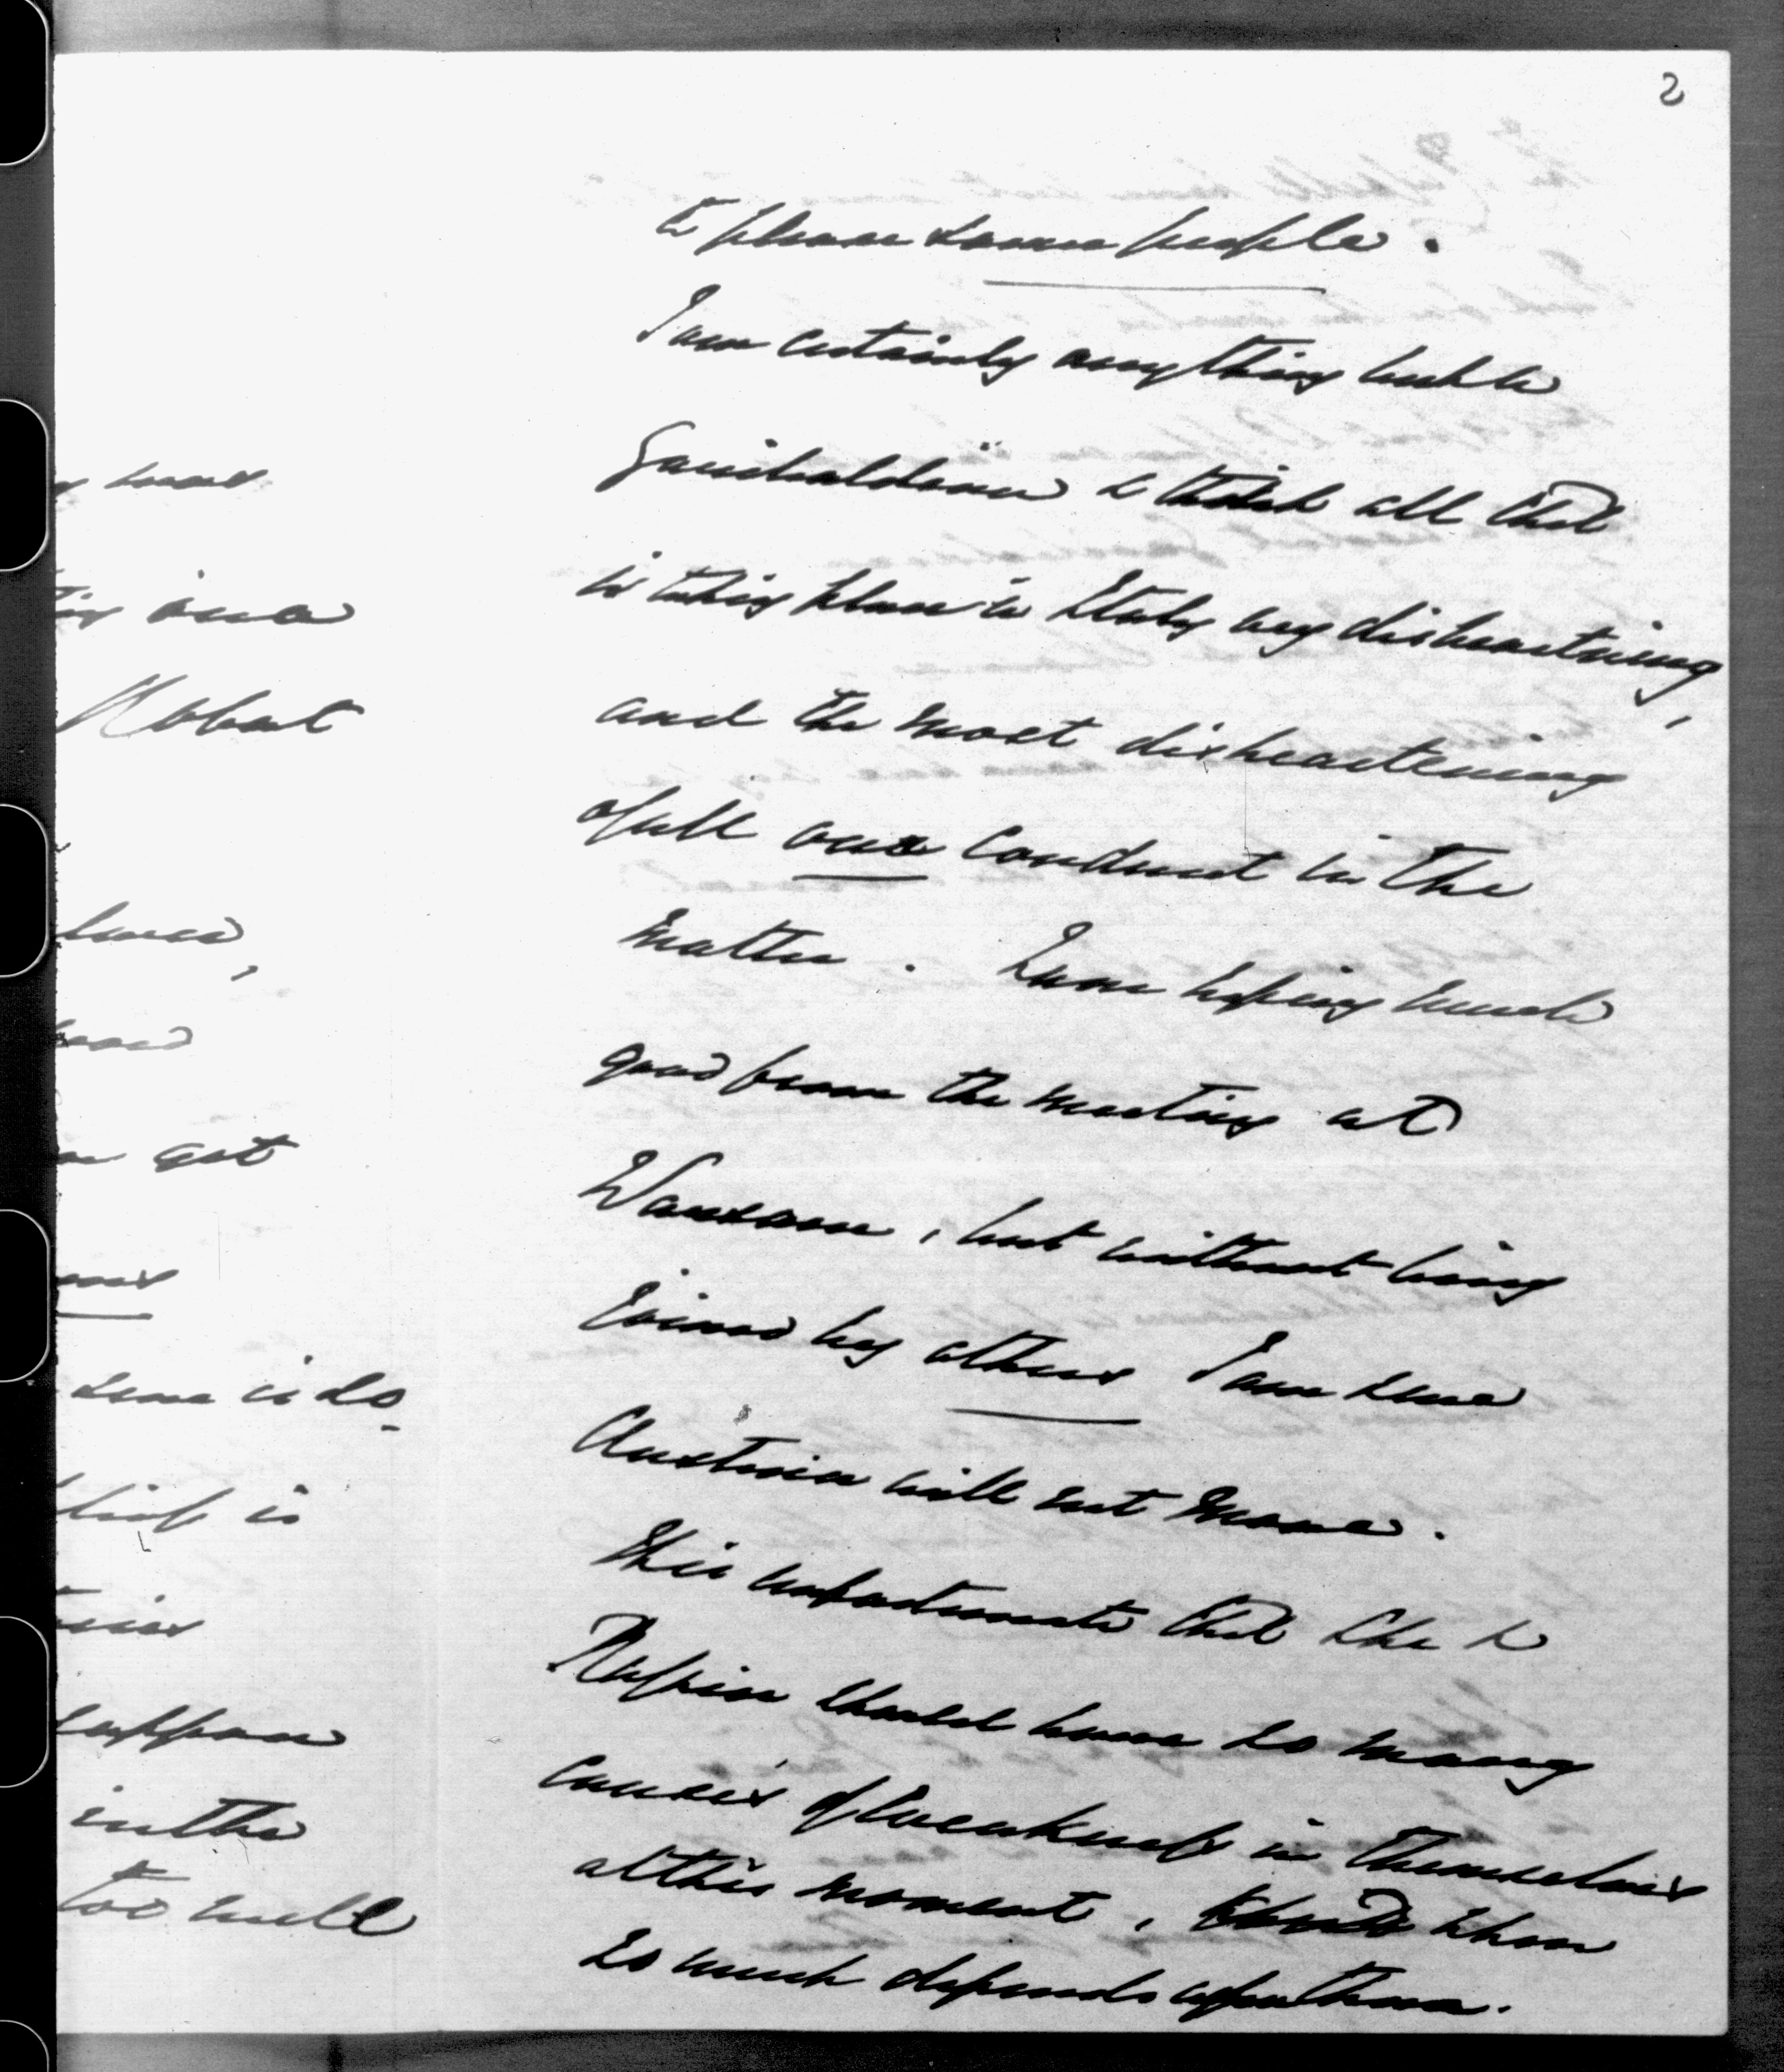 2
to please some people.
I am certainly anything but a
Garibaldian & think all that
is taking place in Italy very disheartning,
and the most disheartening
of all our conduct in the
matter. I am hoping much
good from the meeting at
Warsaw, but without being
joined by others I am sure
Austria will not move.
It is unfortunate that She &
Russia should have so many
causes of weakness in themselves
at this moment, when
so much depends upon them.
one
Robert
got
some is so
is
suppose
in the
too well